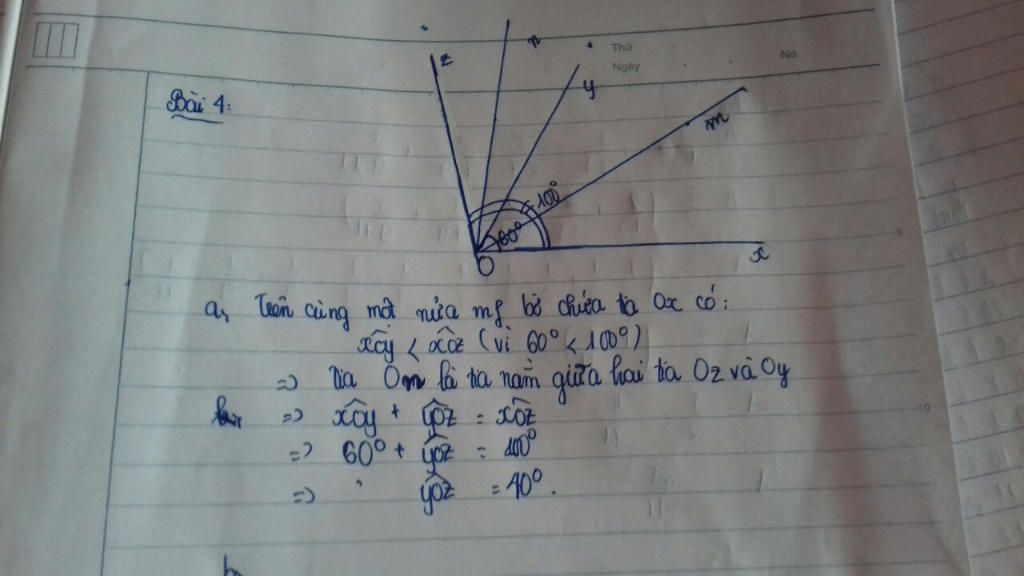 Thứ
Ngày
No.
Bài 4:
z
n
y
m
x
O
60°
= 100°
a, Trên cùng một nửa mf bờ chứa tia Ox có:
xOy < xOz (vì 60° < 100°)
=> Tia Om là tia nằm giữa hai tia Oz và Oy
=> xOy + yOz = xOz
=> 60° + yOz = 100°
=> yOz = 40°.
5
10
b